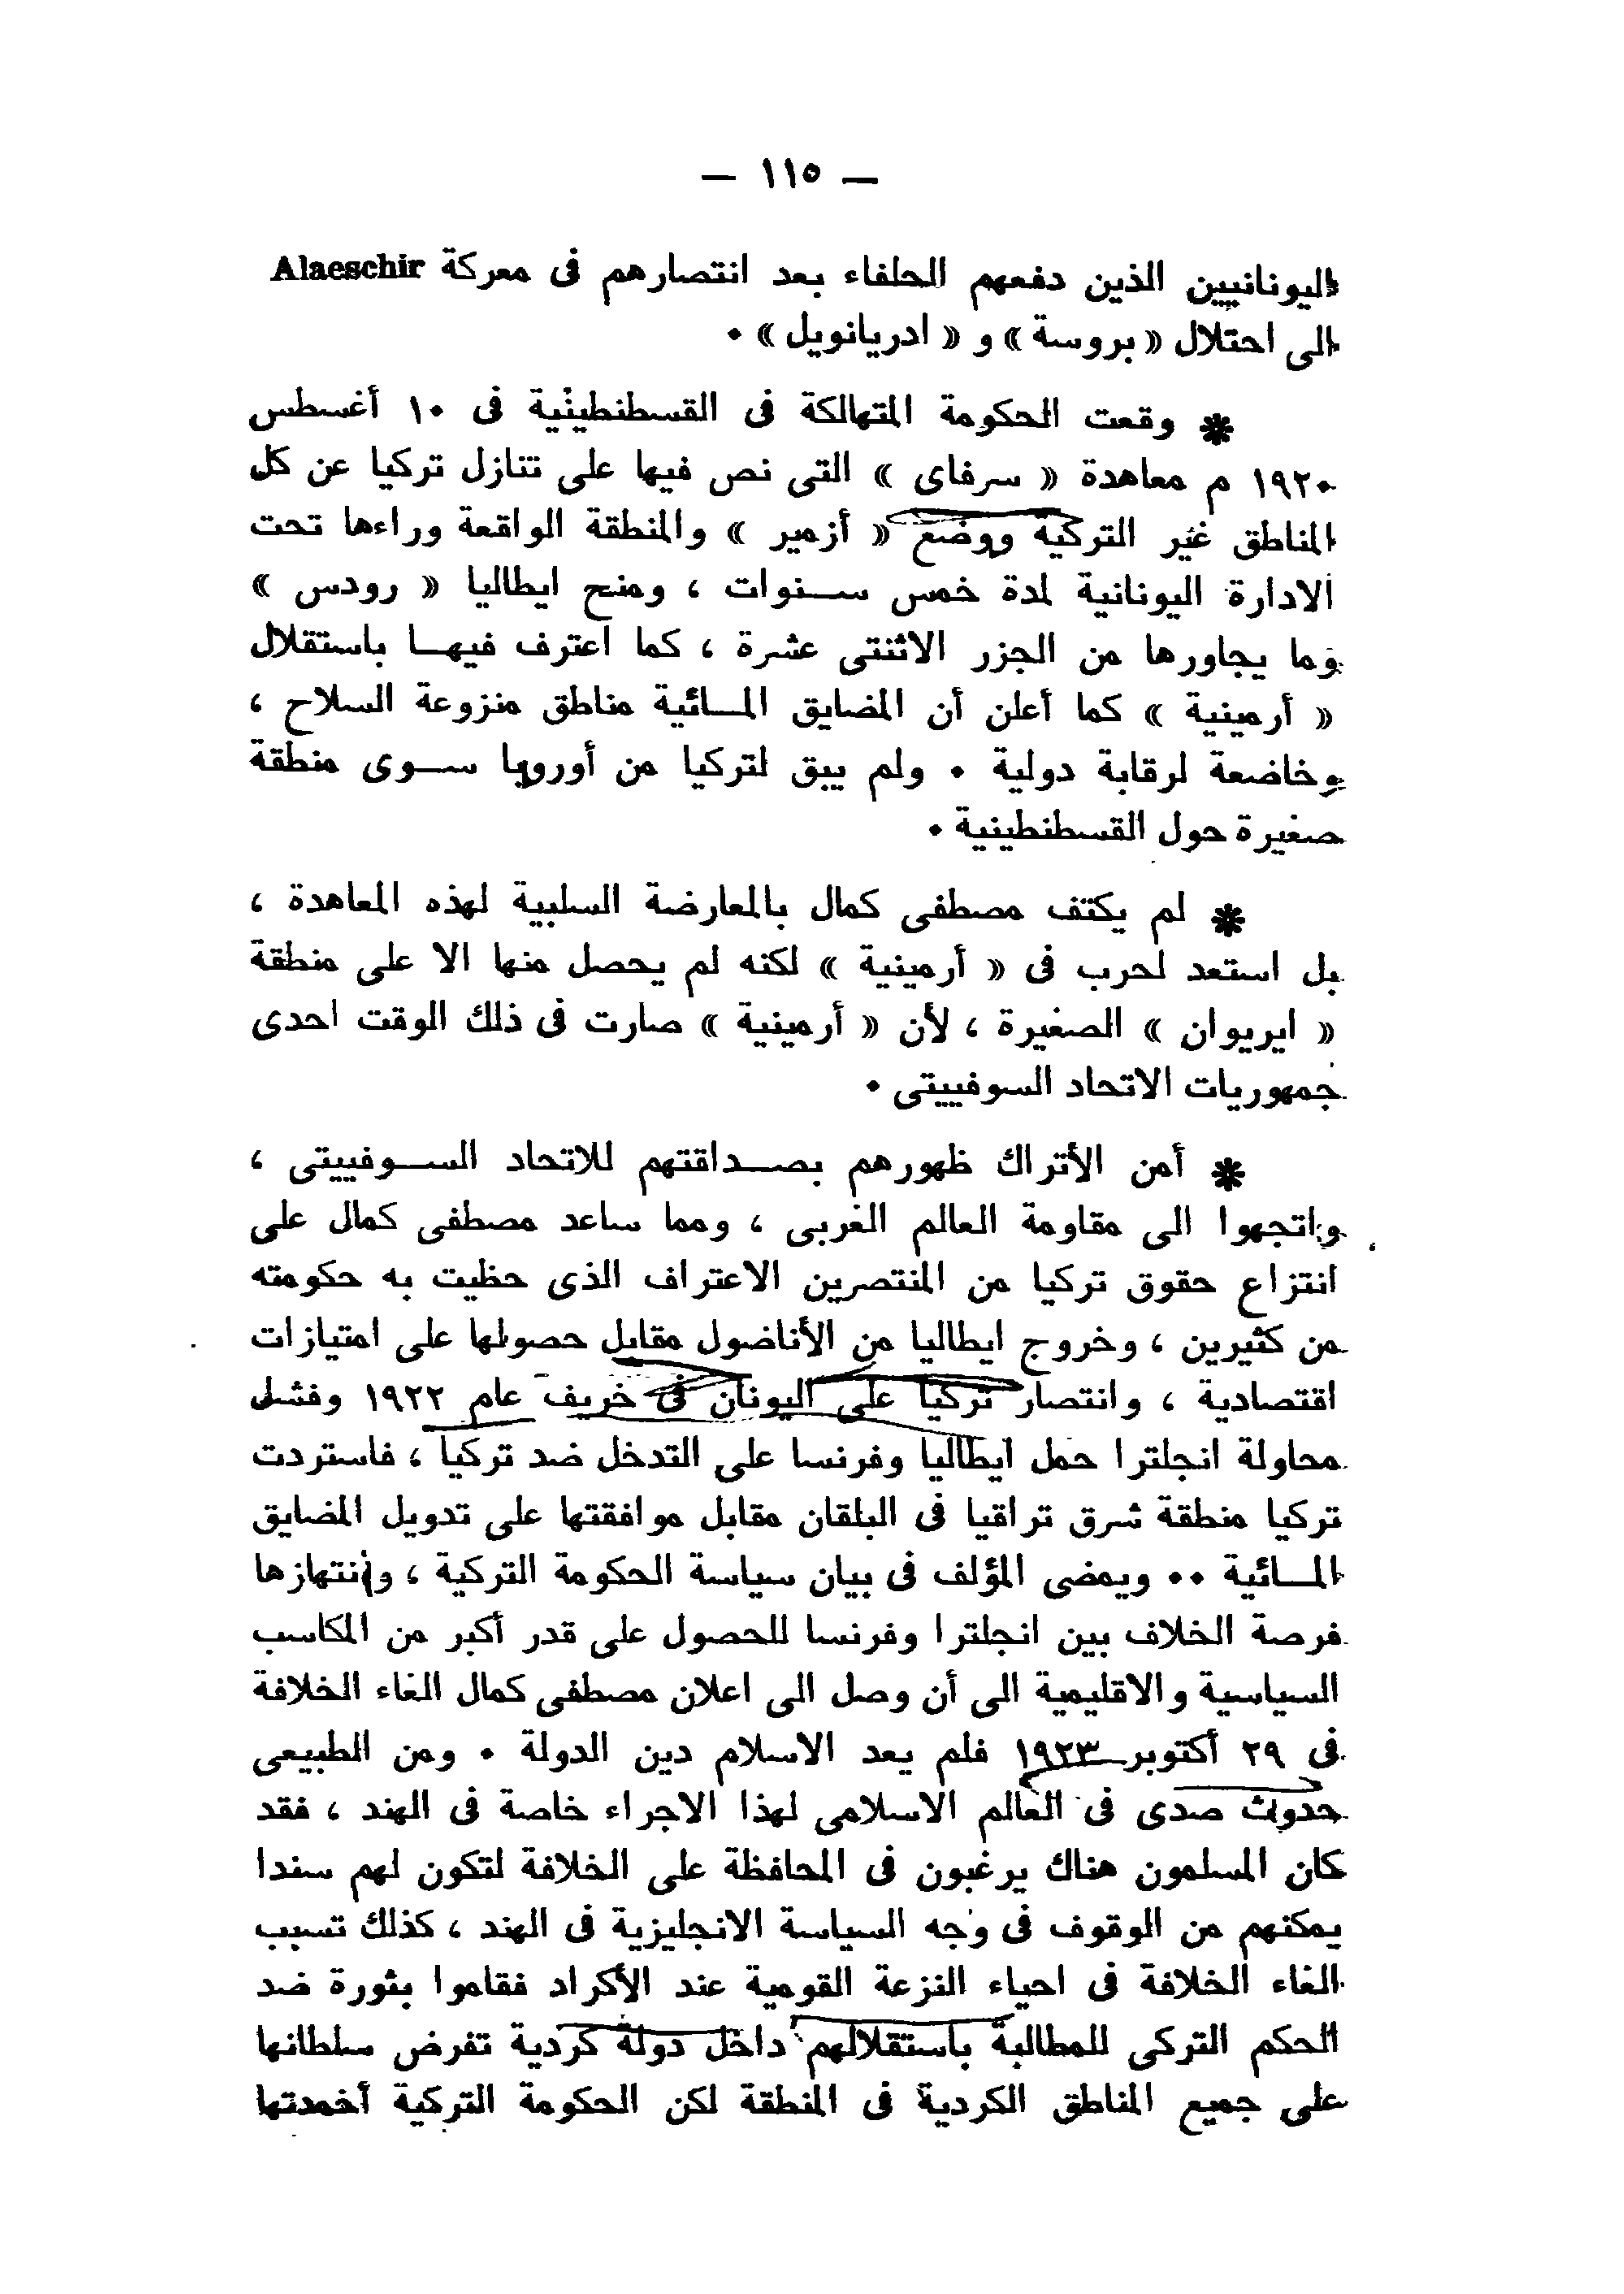 — ١١٥ —
اليونانيين الذين دفعهم الحلفاء بعد انتصارهم فى معركة Alaeschir
الى احتلال « بروسة » و « ادريانويل » ٠
* وقعت الحكومة المتهالكة فى القسطنطينية فى ١٠ أغسطس
١٩٢٠ م معاهدة « سرفاى » التى نص فيها على تنازل تركيا عن كل
المناطق غير التركية ووضع « أزمير » والمنطقة الواقعة وراءها تحت
الادارة اليونانية لمدة خمس سـنوات ، ومنح ايطاليا « رودس »
وما يجاورها من الجزر الاثنتى عشرة ، كما اعترف فيهـا باستقلال
« أرمينية » كما أعلن أن المضايق المـائية مناطق منزوعة السلاح ،
وخاضعة لرقابة دولية ٠ ولم يبق لتركيا من أوروبا سـوى منطقة
صغيرة حول القسطنطينية ٠
* لم يكتف مصطفى كمال بالمعارضة السلبية لهذه المعاهدة ،
بل استعد لحرب فى « أرمينية » لكنه لم يحصل منها الا على منطقة
« ايريوان » الصغيرة ، لأن « أرمينية » صارت فى ذلك الوقت احدى
جمهوريات الاتحاد السوفييتى ٠
* أمن الأتراك ظهورهم بصـداقتهم للاتحاد السـوفييتى ،
واتجهوا الى مقاومة العالم الغربى ، ومما ساعد مصطفى كمال على
انتزاع حقوق تركيا من المنتصرين الاعتراف الذى حظيت به حكومته
من كثيرين ، وخروج ايطاليا من الأناضول مقابل حصولها على امتيازات
اقتصادية ، وانتصار تركيا على اليونان فى خريف عام ١٩٢٢ وفشل
محاولة انجلترا حمل ايطاليا وفرنسا على التدخل ضد تركيا ، فاستردت
تركيا منطقة شرق تراقيا فى البلقان مقابل موافقتها على تدويل المضايق
المـائية ٠٠ ويمضى المؤلف فى بيان سياسة الحكومة التركية ، وانتهازها
فرصة الخلاف بين انجلترا وفرنسا للحصول على قدر أكبر من المكاسب
السياسية والاقليمية الى أن وصل الى اعلان مصطفى كمال الغاء الخلافة
فى ٢٩ أكتوبر ١٩٢٣ فلم يعد الاسلام دين الدولة ٠ ومن الطبيعى
حدوث صدى فى العالم الاسلامى لهذا الاجراء خاصة فى الهند ، فقد
كان المسلمون هناك يرغبون فى المحافظة على الخلافة لتكون لهم سندا
يمكنهم من الوقوف فى وجه السياسة الانجليزية فى الهند ، كذلك تسبب
الغاء الخلافة فى احياء النزعة القومية عند الأكراد فقاموا بثورة ضد
الحكم التركى للمطالبة باستقلالهم داخل دولة كردية تفرض سلطانها
على جميع المناطق الكردية فى المنطقة لكن الحكومة التركية أخمدتها